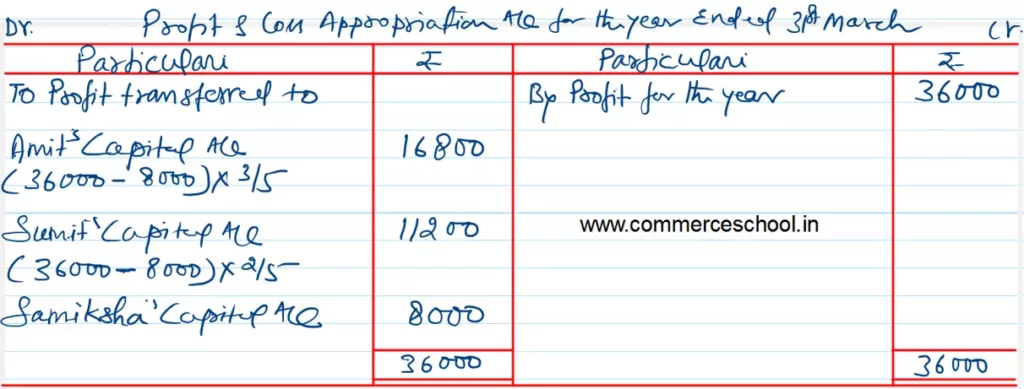 Dr. Profit & Loss Appropriation A/c for the year Ended 31st March Cr.
Particulars ₹ Particulars ₹
To Profit transferred to By Profit for the year 36000
Amit's Capital A/c 16800
(36000 - 8000) x 3/5
Sumit's Capital A/c 11200 www.commerceschool.in
(36000 - 8000) x 2/5
Samiksha's Capital A/c 8000
36000 36000